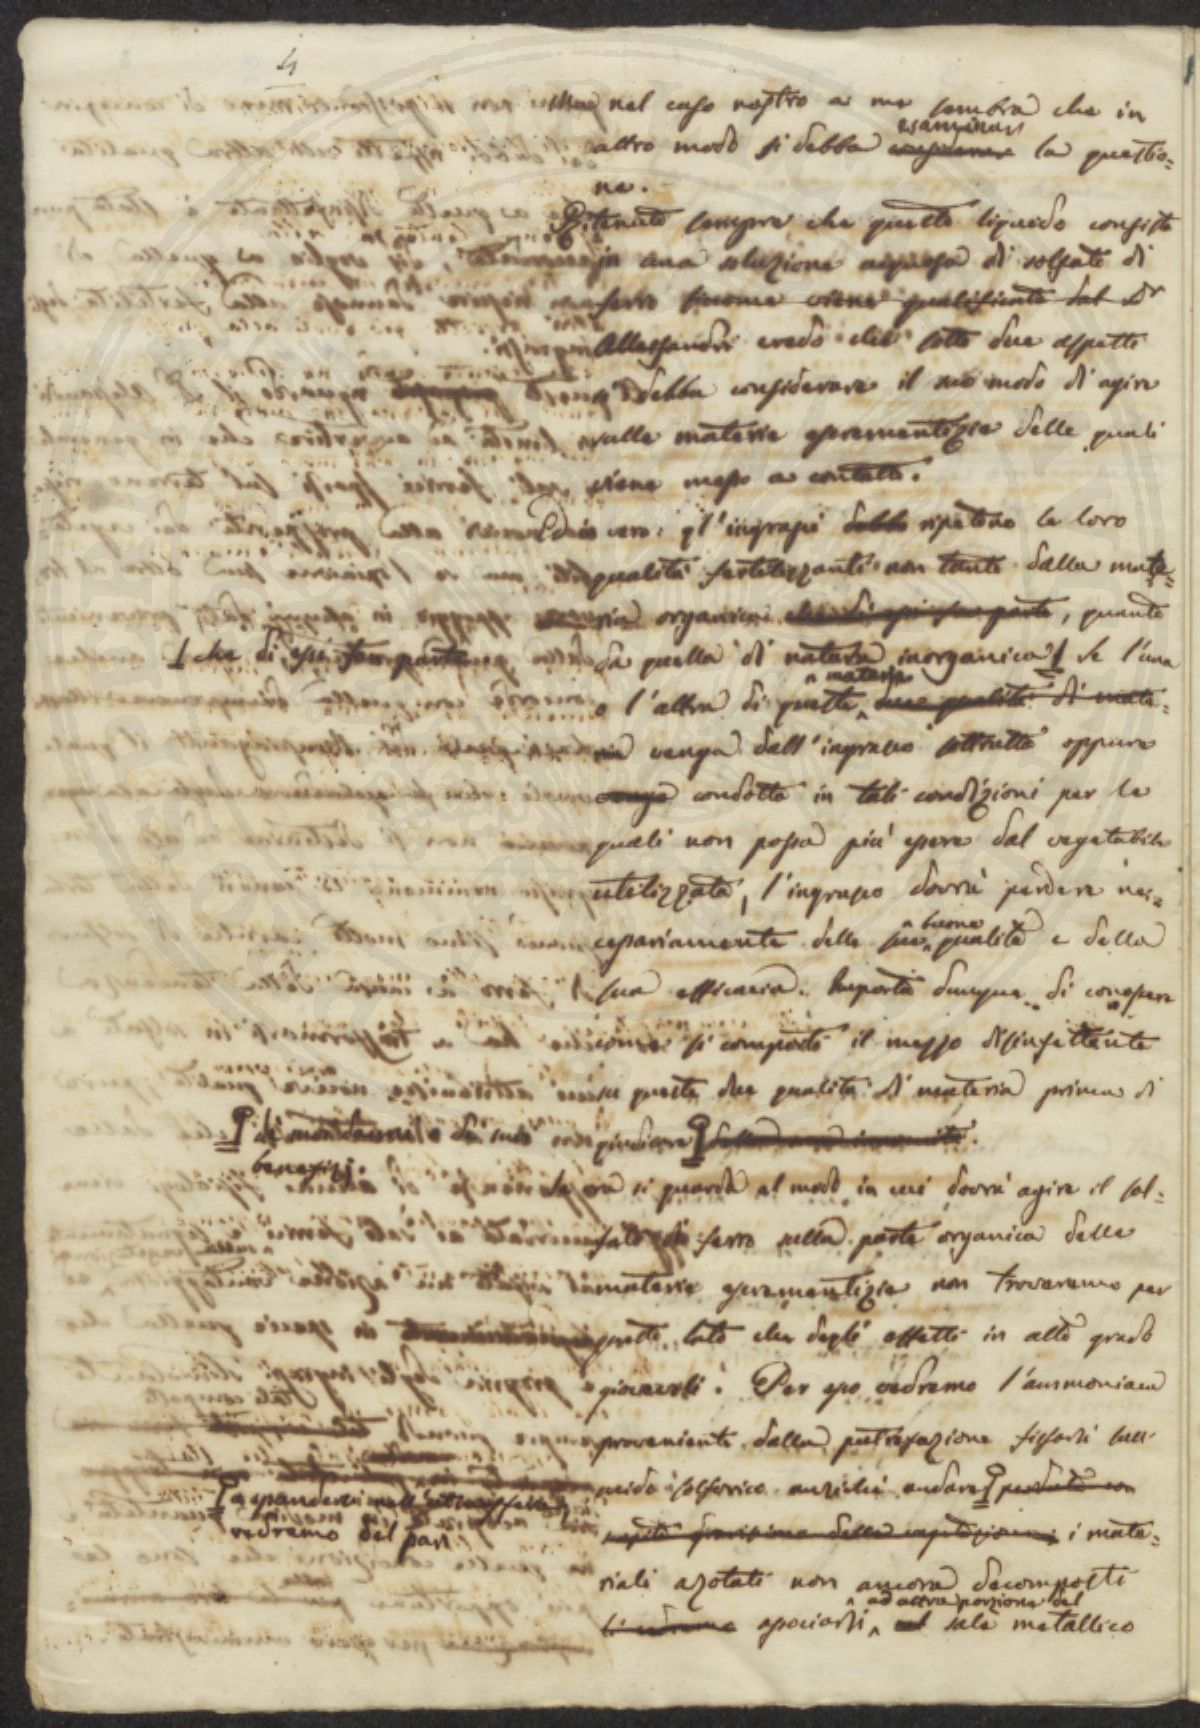 4
Ma nel caso nostro a me sembra che in
altro modo si debba esaminarsi considerare la questio=
ne.
Ritenuto sempre che questo liquido consista
in una soluzione acquosa di solfato di
ferro siccome viene qualificato dal Dr
Allessandri credo che sotto due aspetti
si debba considerare il suo modo di agire
sulle materie escrementizie delle quali
viene messo a contatto.
Ed in vero: gl'ingrassi debbo ripetono le loro
qualità fertilizzanti non tanto dalla mate=
ria organica che di essi fan parte, quanto
che di essi fan parte
da quella di natura inorganica se l'una
o l'altra di queste materie due qualità di mate=
ria venga dall'ingrasso sottratta oppure
venga condotta in tali condizioni per le
quali non possa più essere dal vegetabile
utilizzata, l'ingrasso dovrà perdere ne=
cessariamente delle sue buone qualità e della
sua efficacia. Importa dunque di conoscere
come si comporti il mezzo disinfettante
su queste due qualità di materia prima di
giudicare della sua innocuità.
di suoi
benefizj.
Se ora si guarda al modo in cui dovrà agire il sol=
fato di ferro sulla parte organica delle
materie escrementizie non troveremo per
questo lato che degli effetti in alto grado
giovevoli. Per esso vedremo l'ammoniaca
proveniente dalla putrefazione fissarsi sull'
acido solforico anziché andare perduta con
a spandersi nell'atmosfera
vedremo del pari
i mate=
riali azotati non ancora decomposti
si vedranno associarsi, ad altra porzione del al sale metallico